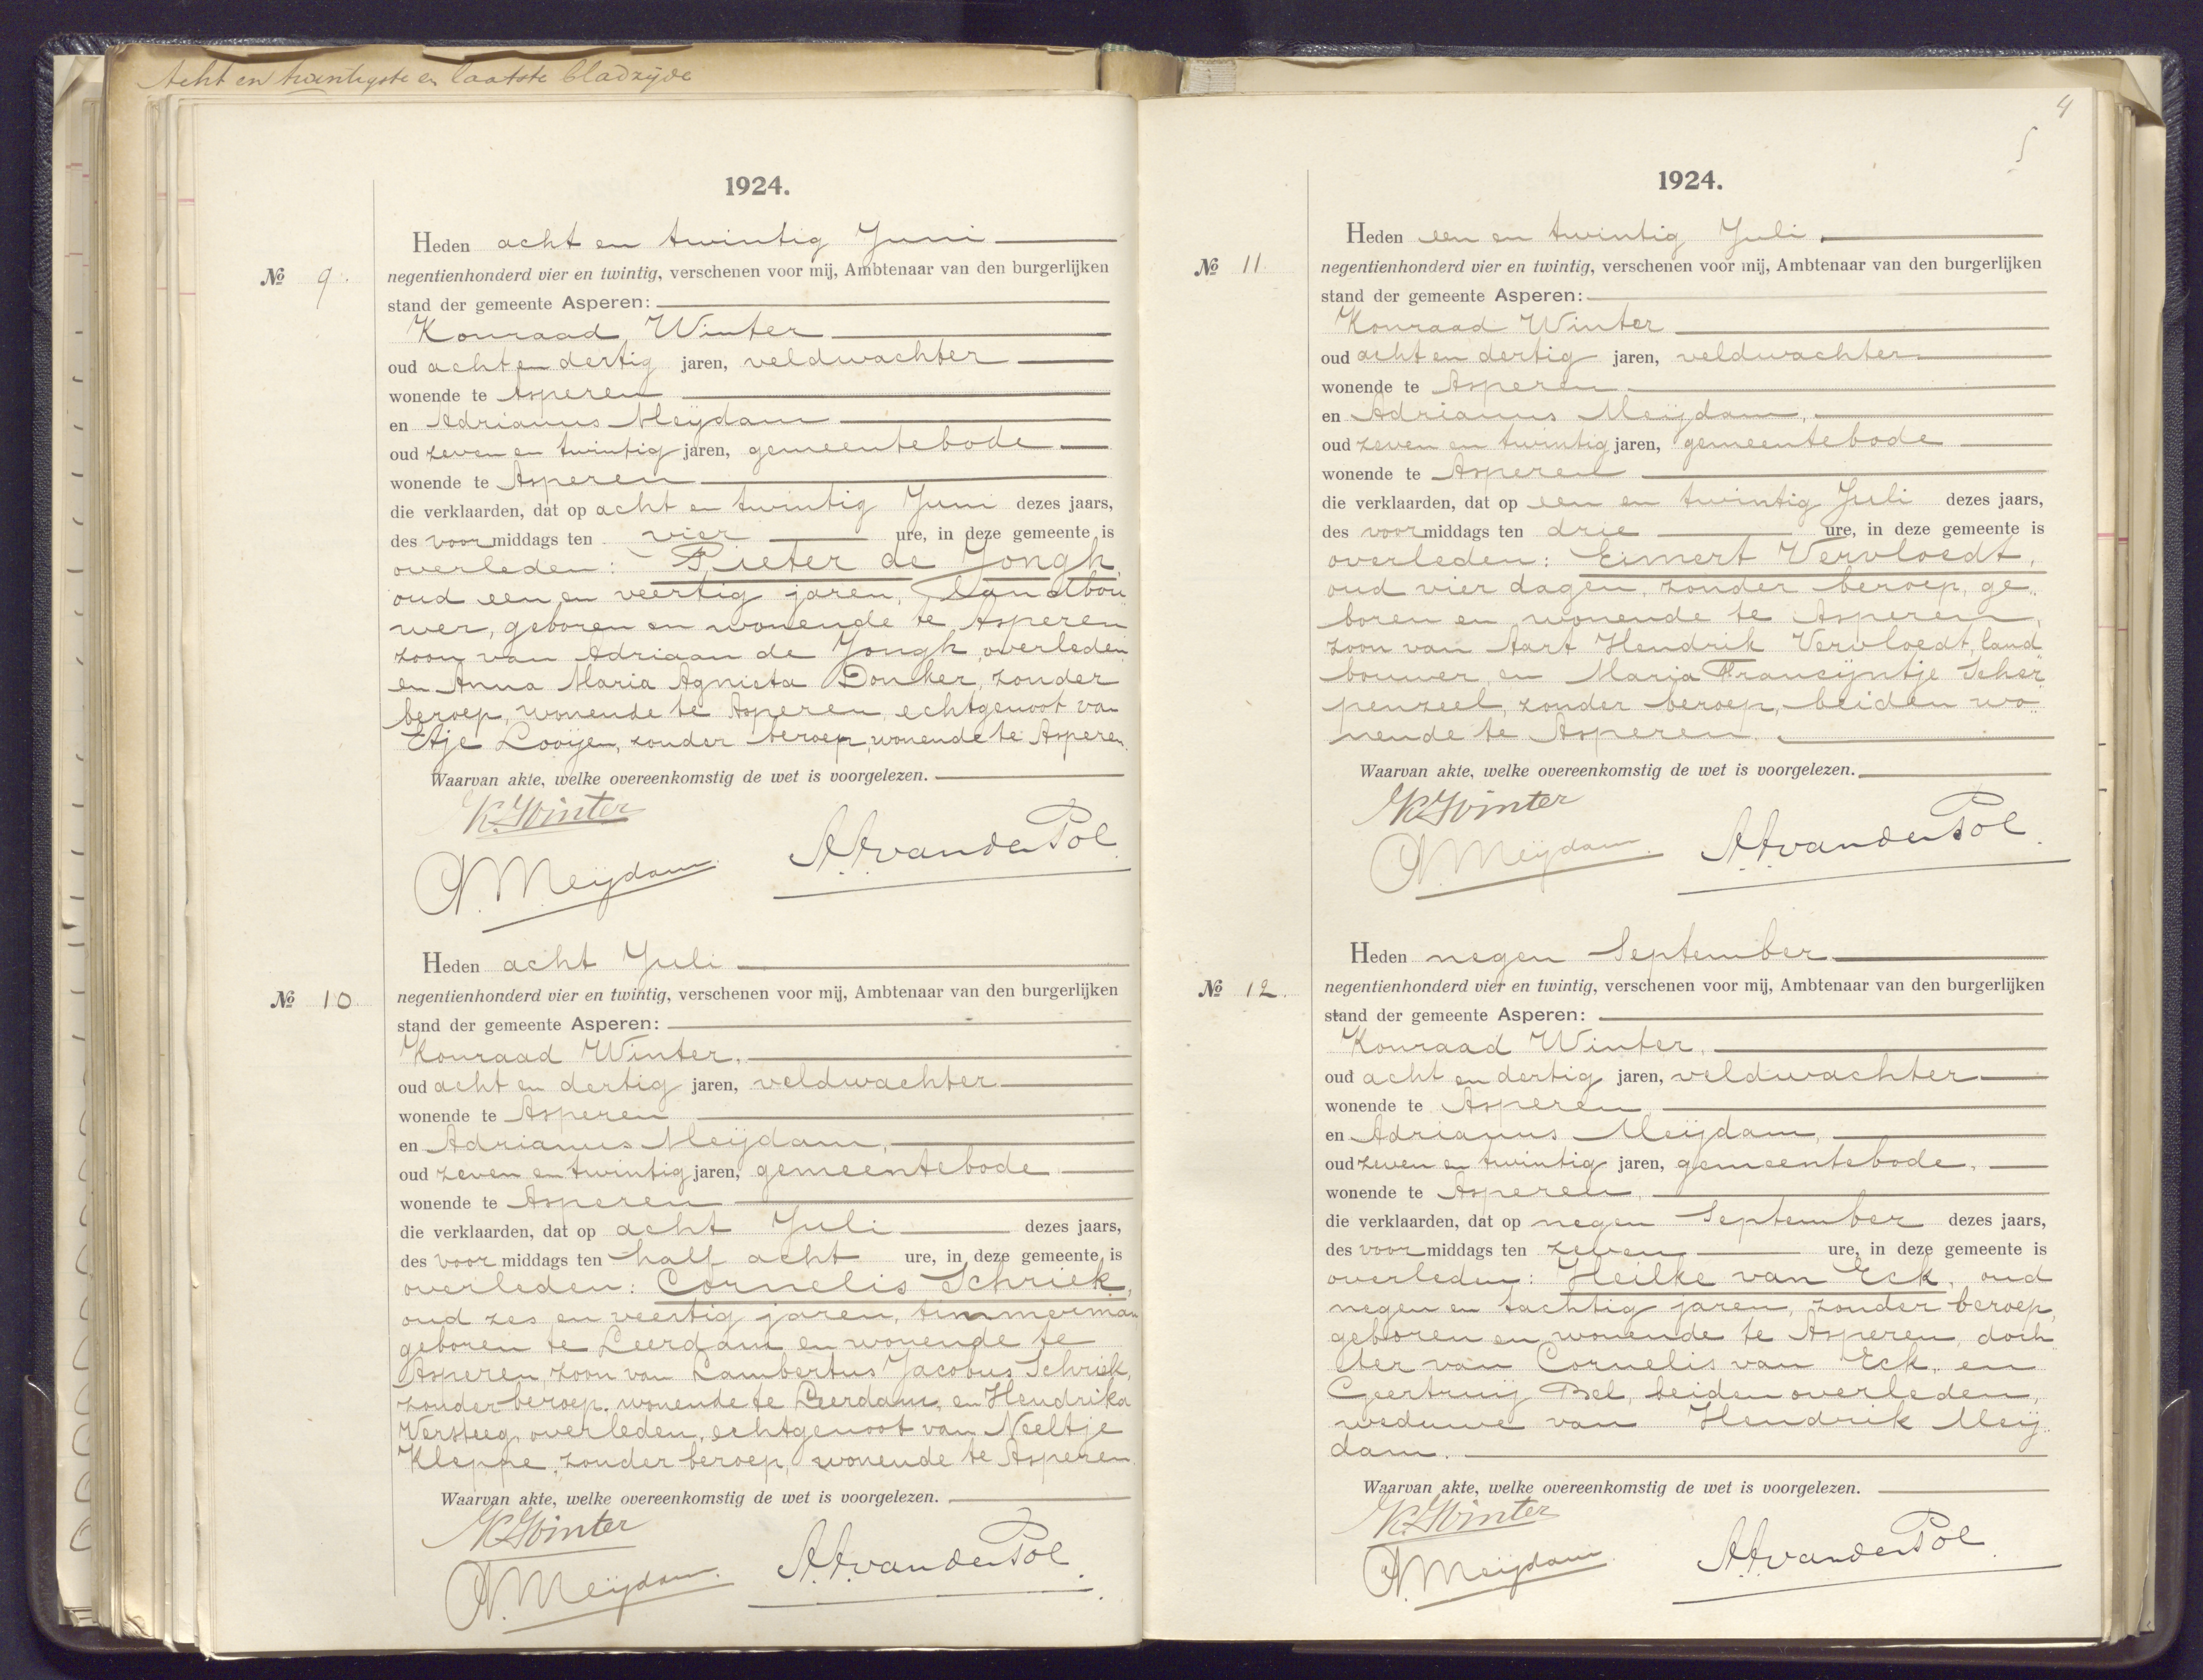 Acht en twintigste en laatste bladzijde
1924.
Heden acht en twintig Juni
No 9.
negentienhonderd vier en twintig, verschenen voor mij, Ambtenaar van den burgerlijken
stand der gemeente Asperen:
Konraad Winter
oud acht en dertig jaren, veldwachter
wonende te Asperen
en Adrianus Meijdam
oud zeven en twintig jaren, gemeentebode
wonende te Asperen
die verklaarden, dat op acht en twintig Juni dezes jaars,
des voormiddags ten vier ure, in deze gemeente is
overleden: Pieter de Jongh,
oud een en veertig jaren, landbou„
wer, geboren en wonende te Asperen
zoon van Adriaan de Jongh, overleden
en Anna Maria Agnieta Donker, zonder
beroep, wonende te Asperen, echtgenoot van
Etje Looijen, zonder beroep, wonende te Asperen.
Waarvan akte, welke overeenkomstig de wet is voorgelezen.
K. Winter
A. Meijdam. A. A. van der Pol
Heden acht Juli
No 10
negentienhonderd vier en twintig, verschenen voor mij, Ambtenaar van den burgerlijken
stand der gemeente Asperen:
Konraad Winter,
oud acht en dertig jaren, veldwachter
wonende te Asperen
en Adrianus Meijdam,
oud zeven en twintig jaren, gemeentebode
wonende te Asperen
die verklaarden, dat op acht Juli dezes jaars,
des voormiddags ten half acht ure, in deze gemeente is
overleden: Cornelis Schriek,
oud zes en veertig jaren, timmerman
geboren te Leerdam en wonende te
Asperen, zoon van Lambertus Jacobus Schriek,
zonder beroep, wonende te Leerdam, en Hendrika
Versteeg, overleden, echtgenoot van Neeltje
Kleppe, zonder beroep, wonende te Asperen.
Waarvan akte, welke overeenkomstig de wet is voorgelezen.
K. Winter
A. Meijdam. A. A. van der Pol.
4
5
1924.
Heden een en twintig Juli
No 11
negentienhonderd vier en twintig, verschenen voor mij, Ambtenaar van den burgerlijken
stand der gemeente Asperen:
Konraad Winter
oud acht en dertig jaren, veldwachter
wonende te Asperen
en Adrianus Meijdam,
oud zeven en twintig jaren, gemeentebode
wonende te Asperen
die verklaarden, dat op een en twintig Juli dezes jaars,
des voormiddags ten drie ure, in deze gemeente is
overleden: Eimert Vervloedt,
oud vier dagen, zonder beroep, ge„
boren en wonende te Asperen,
zoon van Aart Hendrik Vervloedt, land„
bouwer, en Maria Francijntje Scher„
penzeel, zonder beroep, beiden wo„
nende te Asperen.
Waarvan akte, welke overeenkomstig de wet is voorgelezen.
K. Winter
A. Meijdam. A. A. van der Pol.
Heden negen September
No 12.
negentienhonderd vier en twintig, verschenen voor mij, Ambtenaar van den burgerlijken
stand der gemeente Asperen:
Konraad Winter,
oud acht en dertig jaren, veldwachter
wonende te Asperen
en Adrianus Meijdam,
oud zeven en twintig jaren, gemeentebode,
wonende te Asperen,
die verklaarden, dat op negen September dezes jaars,
des voormiddags ten zeven ure, in deze gemeente is
overleden: Heilke van Eck, oud
negen en tachtig jaren, zonder beroep,
geboren en wonende te Asperen, doch„
ter van Cornelis van Eck, en
Geertruij Bel, beiden overleden,
weduwe van Hendrik Meij„
dam.
Waarvan akte, welke overeenkomstig de wet is voorgelezen.
K. Winter
A. Meijdam. A. A. van der Pol.